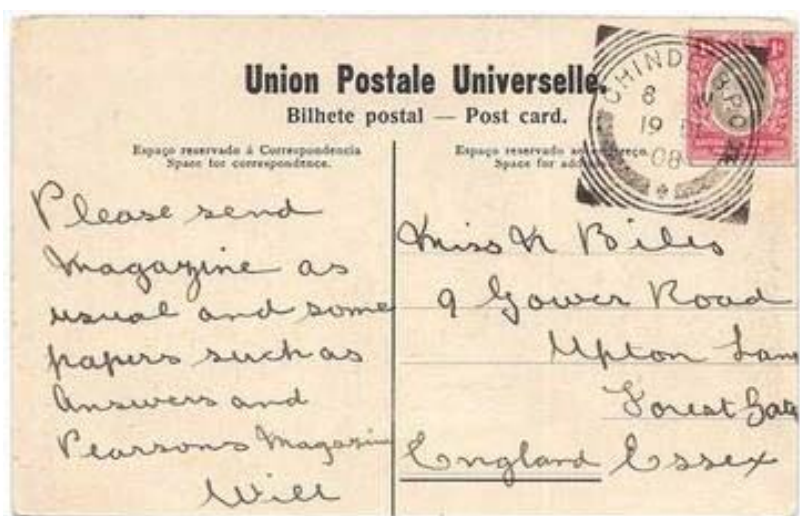 Union Postale Universelle.
Bilhete postal — Post card.
Espaço reservado á Correspondencia
Space for correspondence.
Espaço reservado ao
Space for
CHINDE B.P.O
8
19
08
1d
Please send
Magazine as
usual and some
papers such as
Answers and
Pearsons Magazine
Will
Miss N Biles
9 Gower Road
Upton Lane
Forest Gate
England Essex